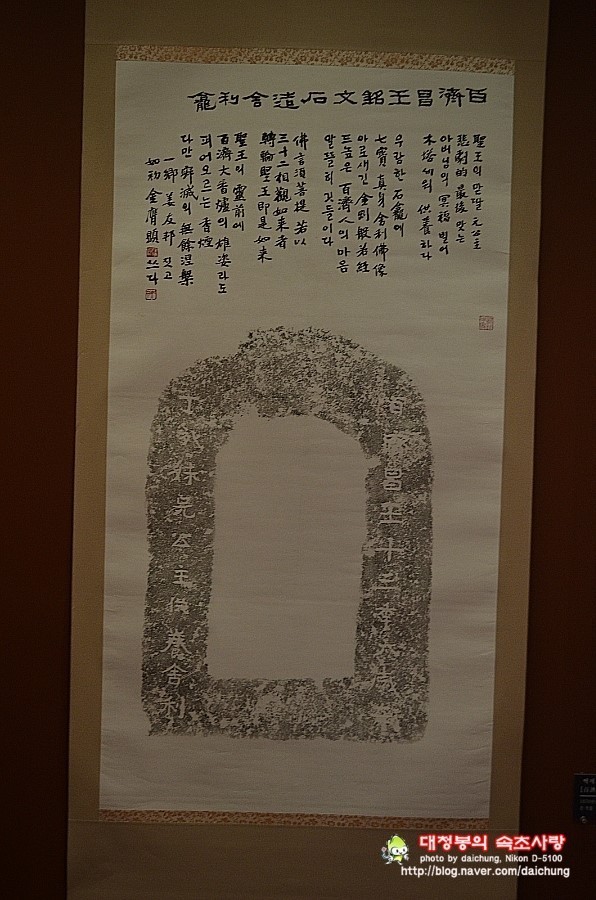 百濟昌王銘文石造舍利龕
聖王의 만딸 兄公主
悲劇的 最後 맞는
아버님의 冥福 빌어
木塔 세워 供養하다
우람한 石龕에
七寶 眞身舍利佛像
아로새긴 金剛般若經
드높은 百濟人의 마음
알뜰히 깃들이다
佛言須菩提 若以
三十二相觀如來者
轉輪聖王卽是如來
聖王의 靈前에
百濟大香爐의 雄姿라도
피어오르는 香煙
다만 寂滅의 無餘涅槃
一鄕 姜友邦 짓고
如初 金膺顯 쓰다
百濟昌王十三年太歲在
丁亥妹兄公主供養舍利
대청봉의 속초사랑
photo by daichung, Nikon D-5100
http://blog.naver.com/daichung